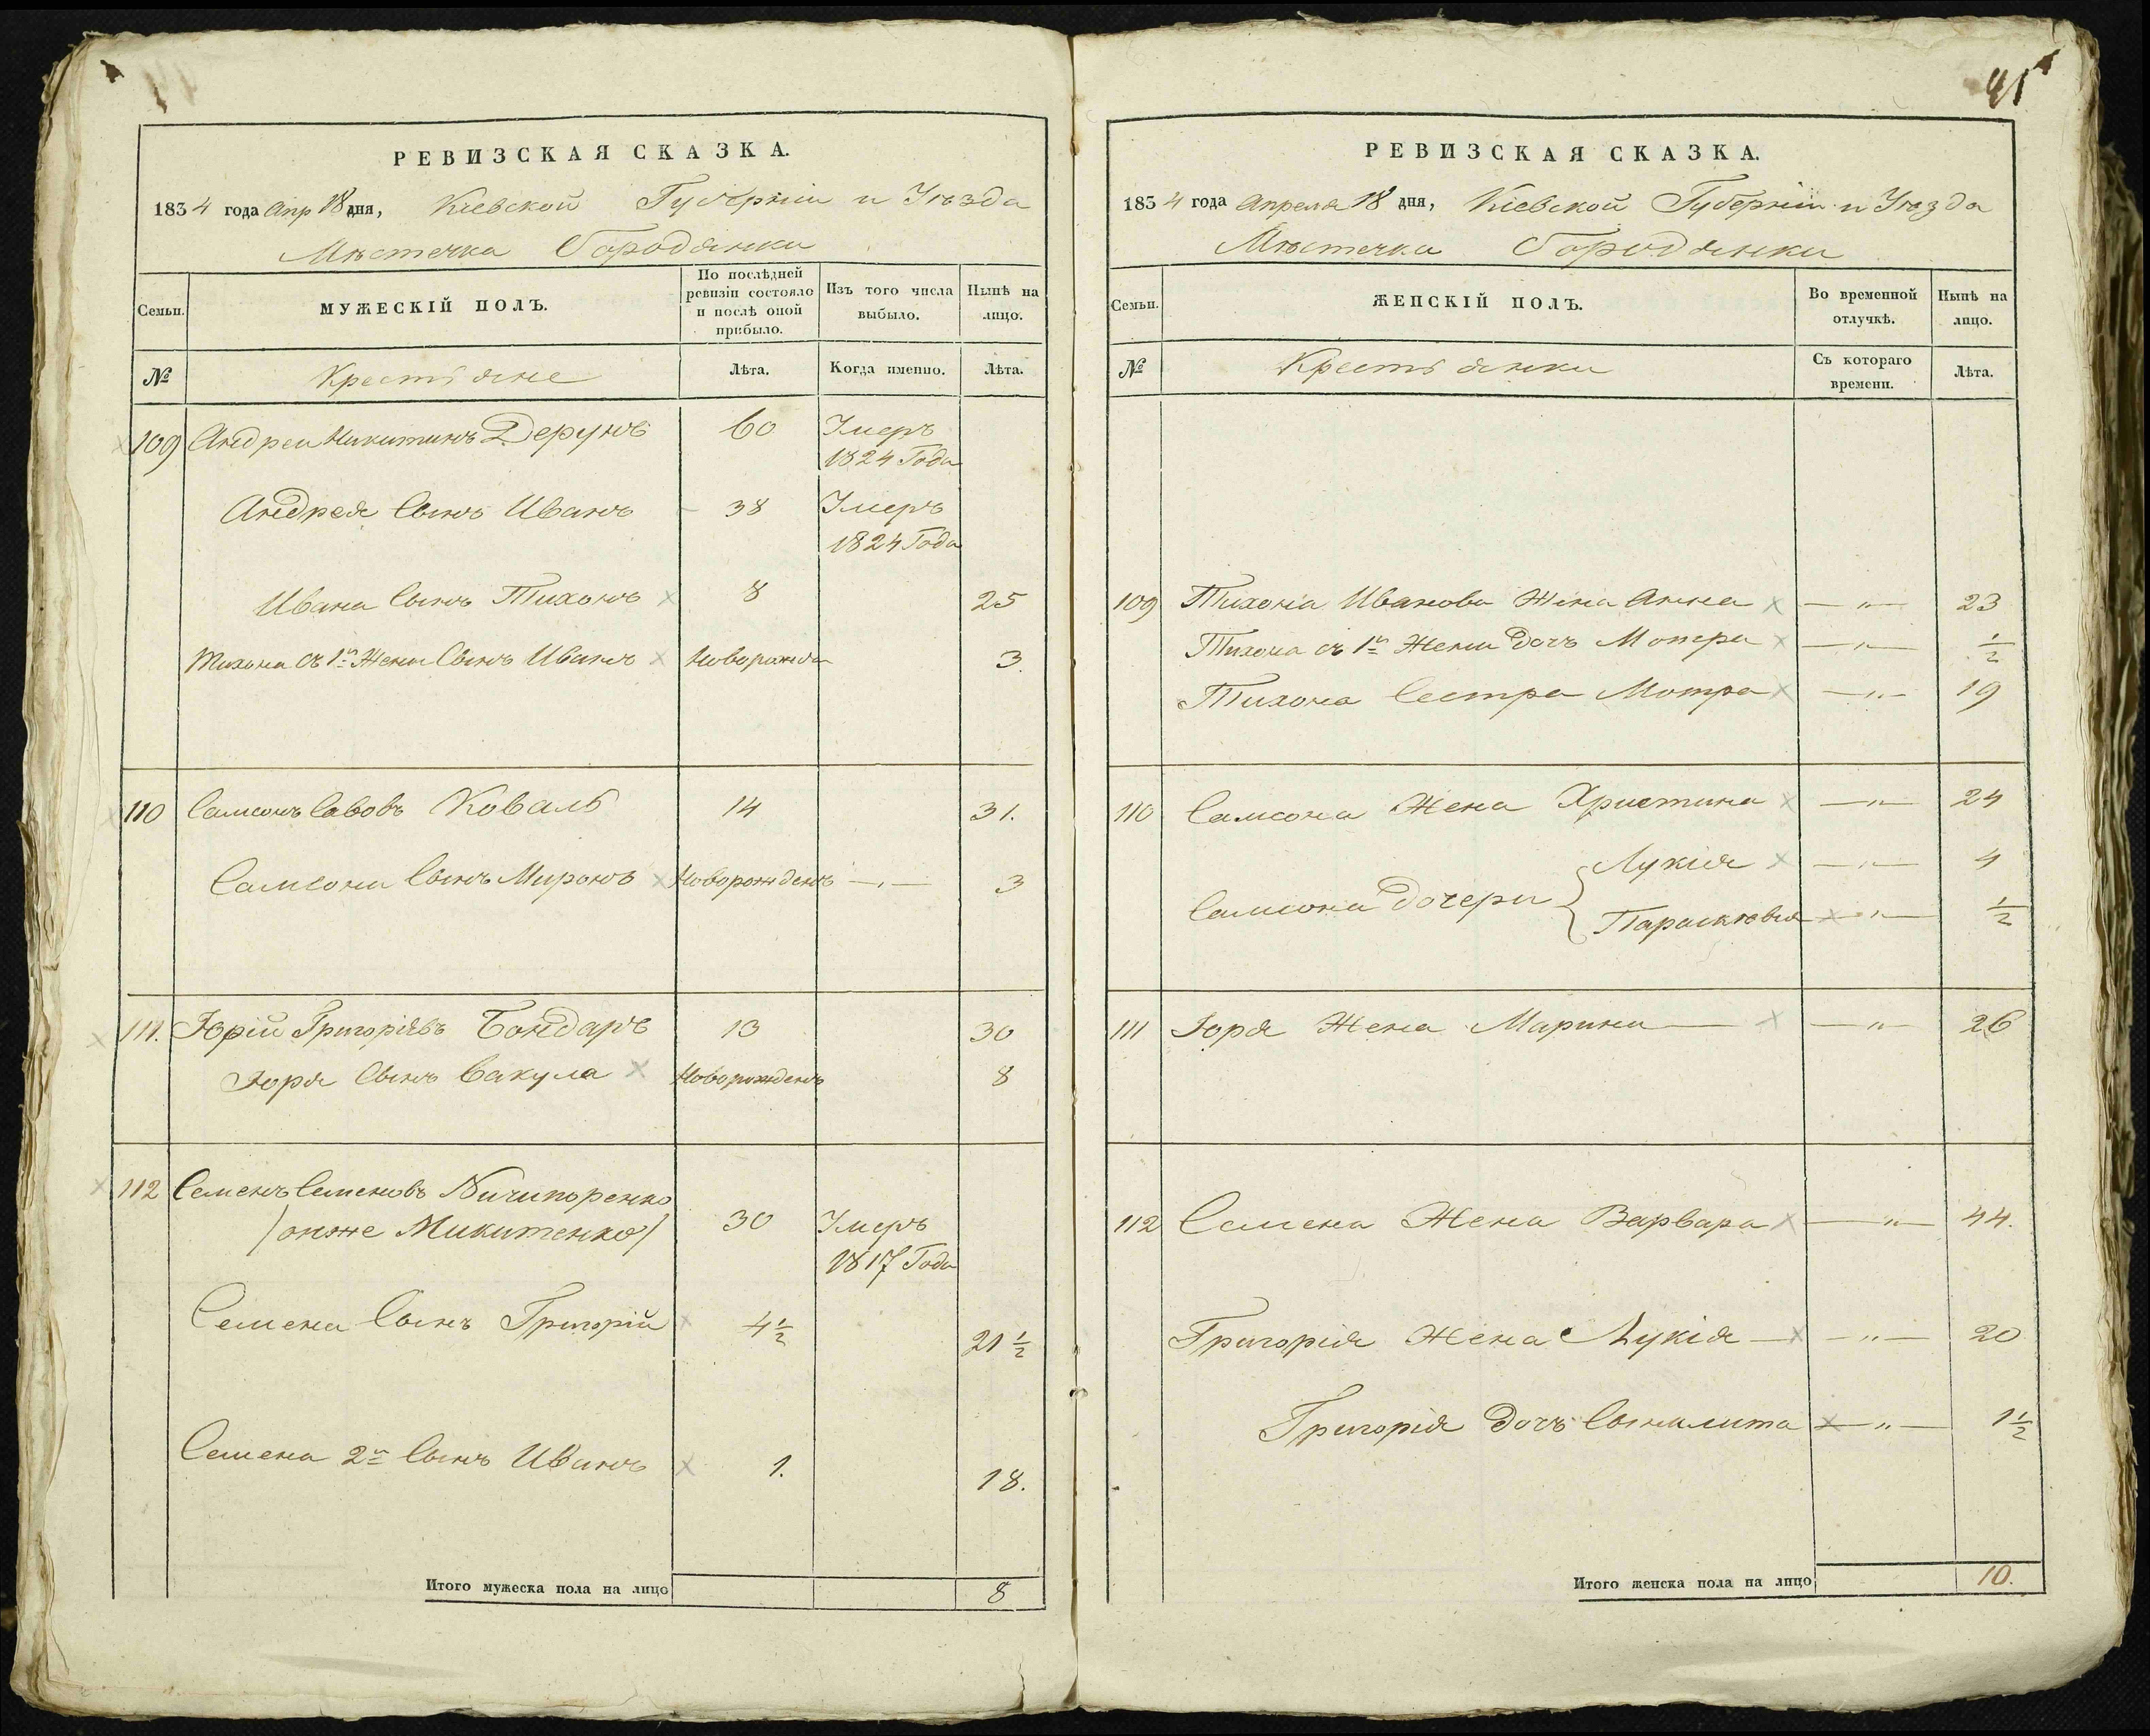 РЕВИЗСКАЯ СКАЗКА.
1834 года Апр 18 дня, Кіевской Губерніи и Уѣзда
Мѣстечка Бородянки
Семьи.
МУЖЕСКІЙ ПОЛЪ.
По послѣдней ревизіи состояло и послѣ оной прибыло.
Изъ того числа выбыло.
Нынѣ на лицо.
№
Крестьяне
Лѣта.
Когда именно.
Лѣта.
109 Андреи Никитинъ Дерунъ 60 Умеръ
1824 Года
Андрея Сынъ Иванъ 38 Умеръ
1824 Года
Ивана Сынъ Тихонъ 8 25
Тихона съ 1й Жены Сынъ Иванъ Новорожден 3.
110 Самсонъ Савовъ Коваль 14 31.
Самсона Сынъ Миронъ Новорожденъ —„— 3
111. Юрій Григоріевъ Бондаръ 13 30
Юря Сынъ Вакула Новорожденъ 8
112 Семенъ Семеновъ Ничипоренко
/онже Микитенко/ 30 Умеръ
1817 Года
Семена Сынъ Григорій 4½ 21½
Семена 2й Сынъ Иванъ 1. 18.
Итого мужеска пола на лицо 8
41
РЕВИЗСКАЯ СКАЗКА.
1834 года Апреля 18 дня, Кіевской Губерніи и Уѣзда
Мѣстечка Бородянки
Семьи.
ЖЕНСКІЙ ПОЛЪ.
Во временной отлучкѣ.
Нынѣ на лицо.
№
Крестьянки
Съ котораго времени.
Лѣта.
109 Тихона Иванова Жена Анна —„— 23
Тихона съ 1й Жены Дочь Мотра —„— ½
Тихона Сестра Мотра —„— 19
110 Самсона Жена Христина —„— 24
Самсона Дочери { Лукія —„— 4
Параскѣвія —„— ½
111 Юря Жена Марина —„— 26
112 Семена Жена Варвара —„— 44.
Григорія Жена Лукія —„— 20
Григорія Дочь —„— 1½
Итого женска пола на лицо 10.